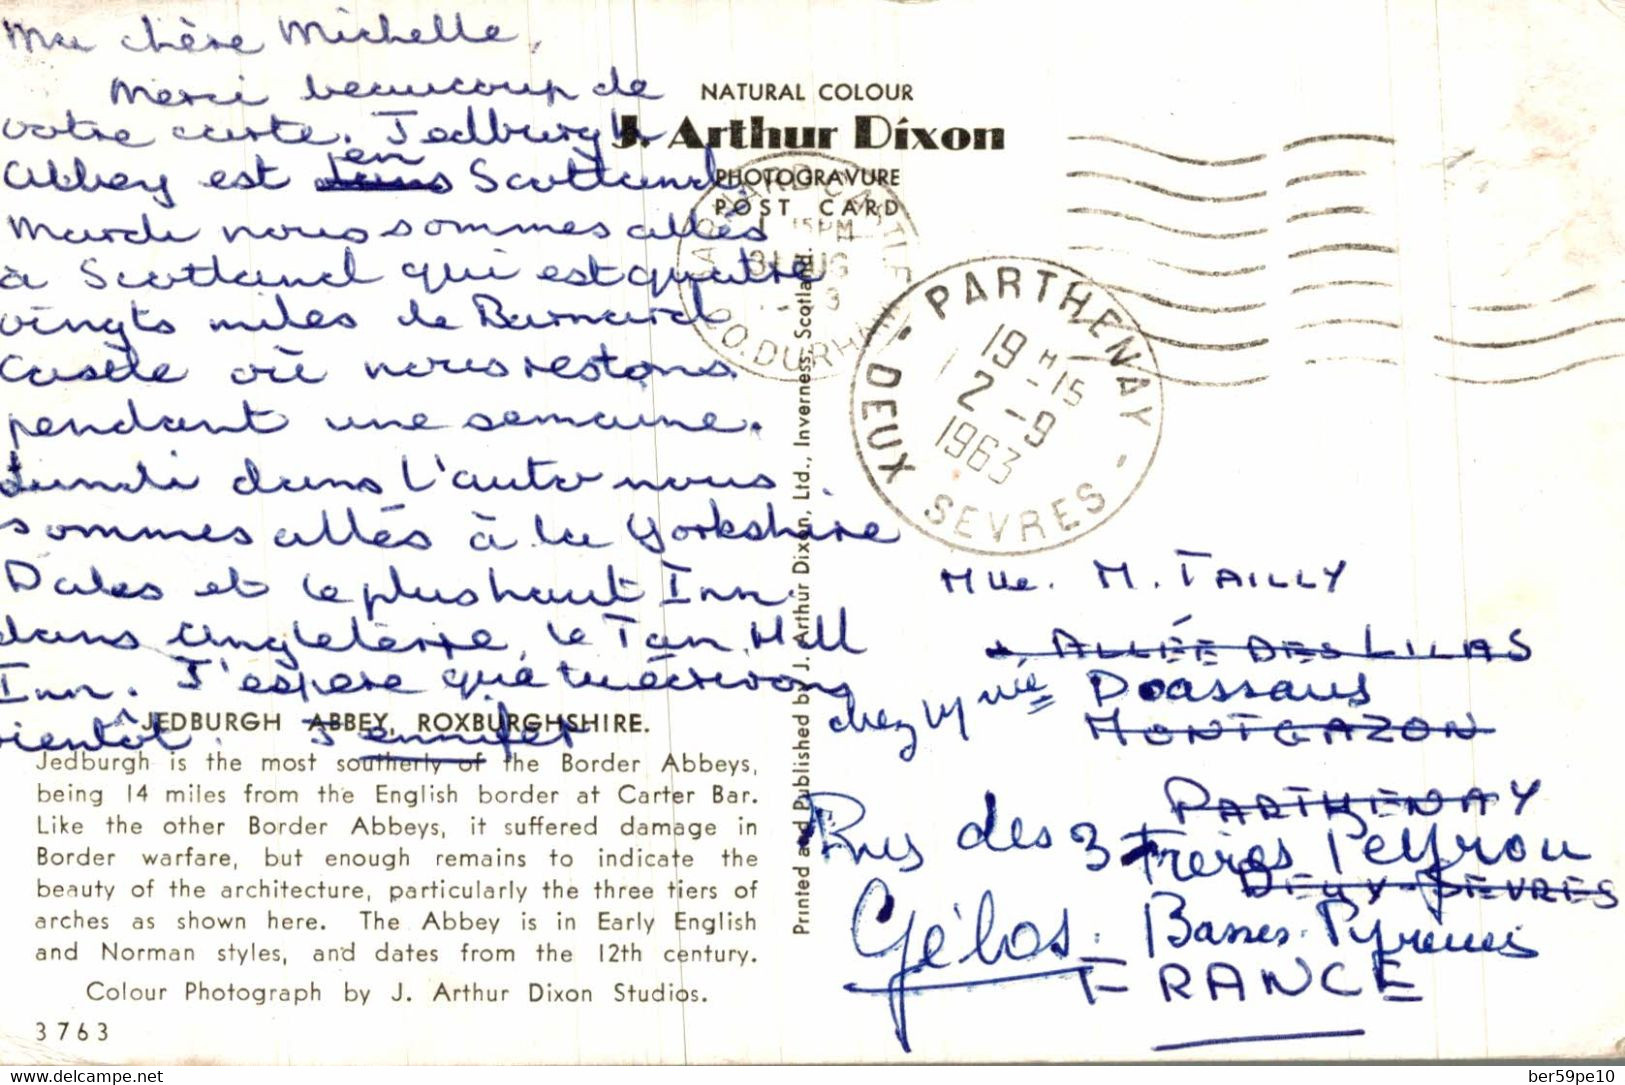 Ma chère Michelle,
Merci beaucoup de
votre carte. Jedburgh
Abbey est en Scotland.
Mardi nous sommes allés
à Scotland qui est quatre
vingts miles de Barnard
Castle où nous restons
pendant une semaine.
Lundi dans l'auto nous
sommes allés à la Yorkshire
Dales et le plus haut Inn
dans Angleterre, le Tan Hill
Inn. J'espère que tu écrivons
bientôt. Jennifer
NATURAL COLOUR
J. Arthur Dixon
PHOTOGRAVURE
POST CARD
BARNARD CASTLE
CO. DURHAM
15PM
31 AUG
PARTHENAY
19 H -15
2 -9
1963
DEUX SEVRES
Printed and Published by J. Arthur Dixon, Ltd., Inverness, Scotland.
Mlle. M. TAILLY
ALLÉE DES LILAS
chez Mme Doassans
MONTGAZON
PARTHENAY
Rue des 3 Frères Peyrou
DEUX-SEVRES
Gélos. Basses-Pyrénées
FRANCE
JEDBURGH ABBEY, ROXBURGHSHIRE.
Jedburgh is the most southerly of the Border Abbeys,
being 14 miles from the English border at Carter Bar.
Like the other Border Abbeys, it suffered damage in
Border warfare, but enough remains to indicate the
beauty of the architecture, particularly the three tiers of
arches as shown here. The Abbey is in Early English
and Norman styles, and dates from the 12th century.
Colour Photograph by J. Arthur Dixon Studios.
3763
delcampe.net
ber59pe10